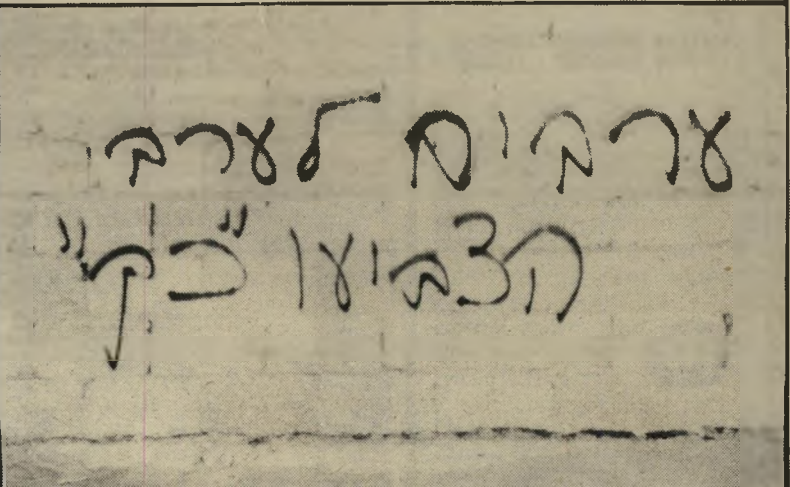 ערבים לערבי
הצביעו "כק"